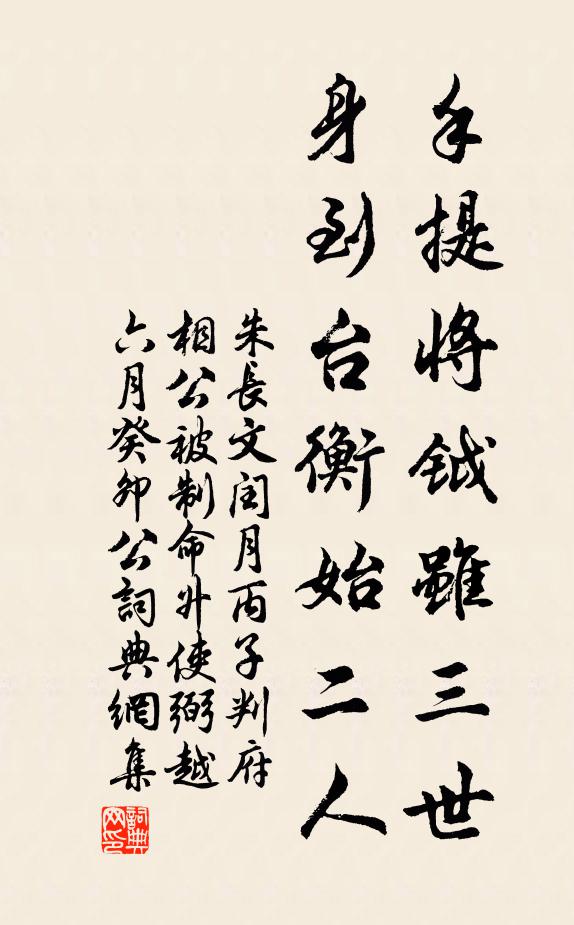 手提將鉞雖三世
身到台衡始二人
朱長文閏月丙子判府
相公被制命升使弼越
六月癸卯公詞典網集
詞典网印